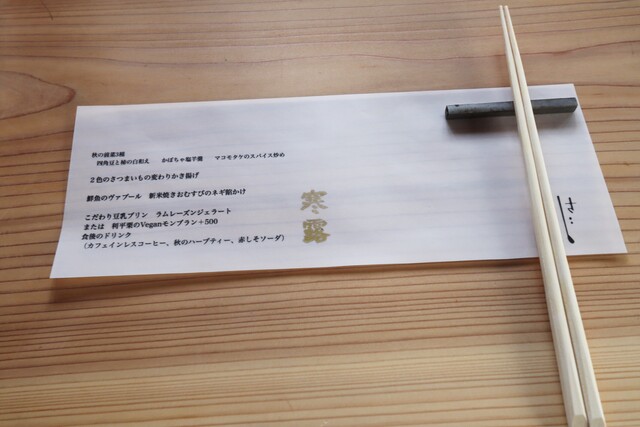 秋の前菜3種
四角豆と柿の白和え　かぼちゃ塩羊羹　マコモタケのスパイス炒め
２色のさつまいもの変わりかき揚げ
鮮魚のヴァプール　新米焼きおむすびのネギ餡かけ
こだわり豆乳プリン　ラムレーズンジェラート
または　利平栗のVeganモンブラン＋500
食後のドリンク
（カフェインレスコーヒー、秋のハーブティー、赤しそソーダ）
寒露